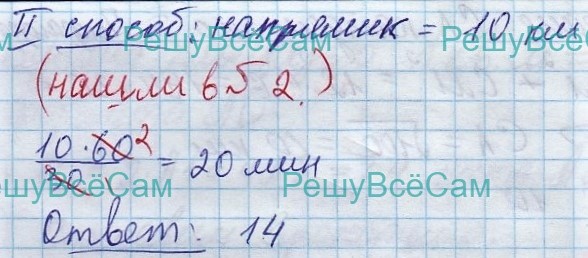 II способ: напрямик = 10 км
(нашли в б 2.)
10 · 60 2 / 30 1 = 20 мин
Ответ: 14
РешуВсёСам РешуВсёСам
РешуВсёСам РешуВсёСам